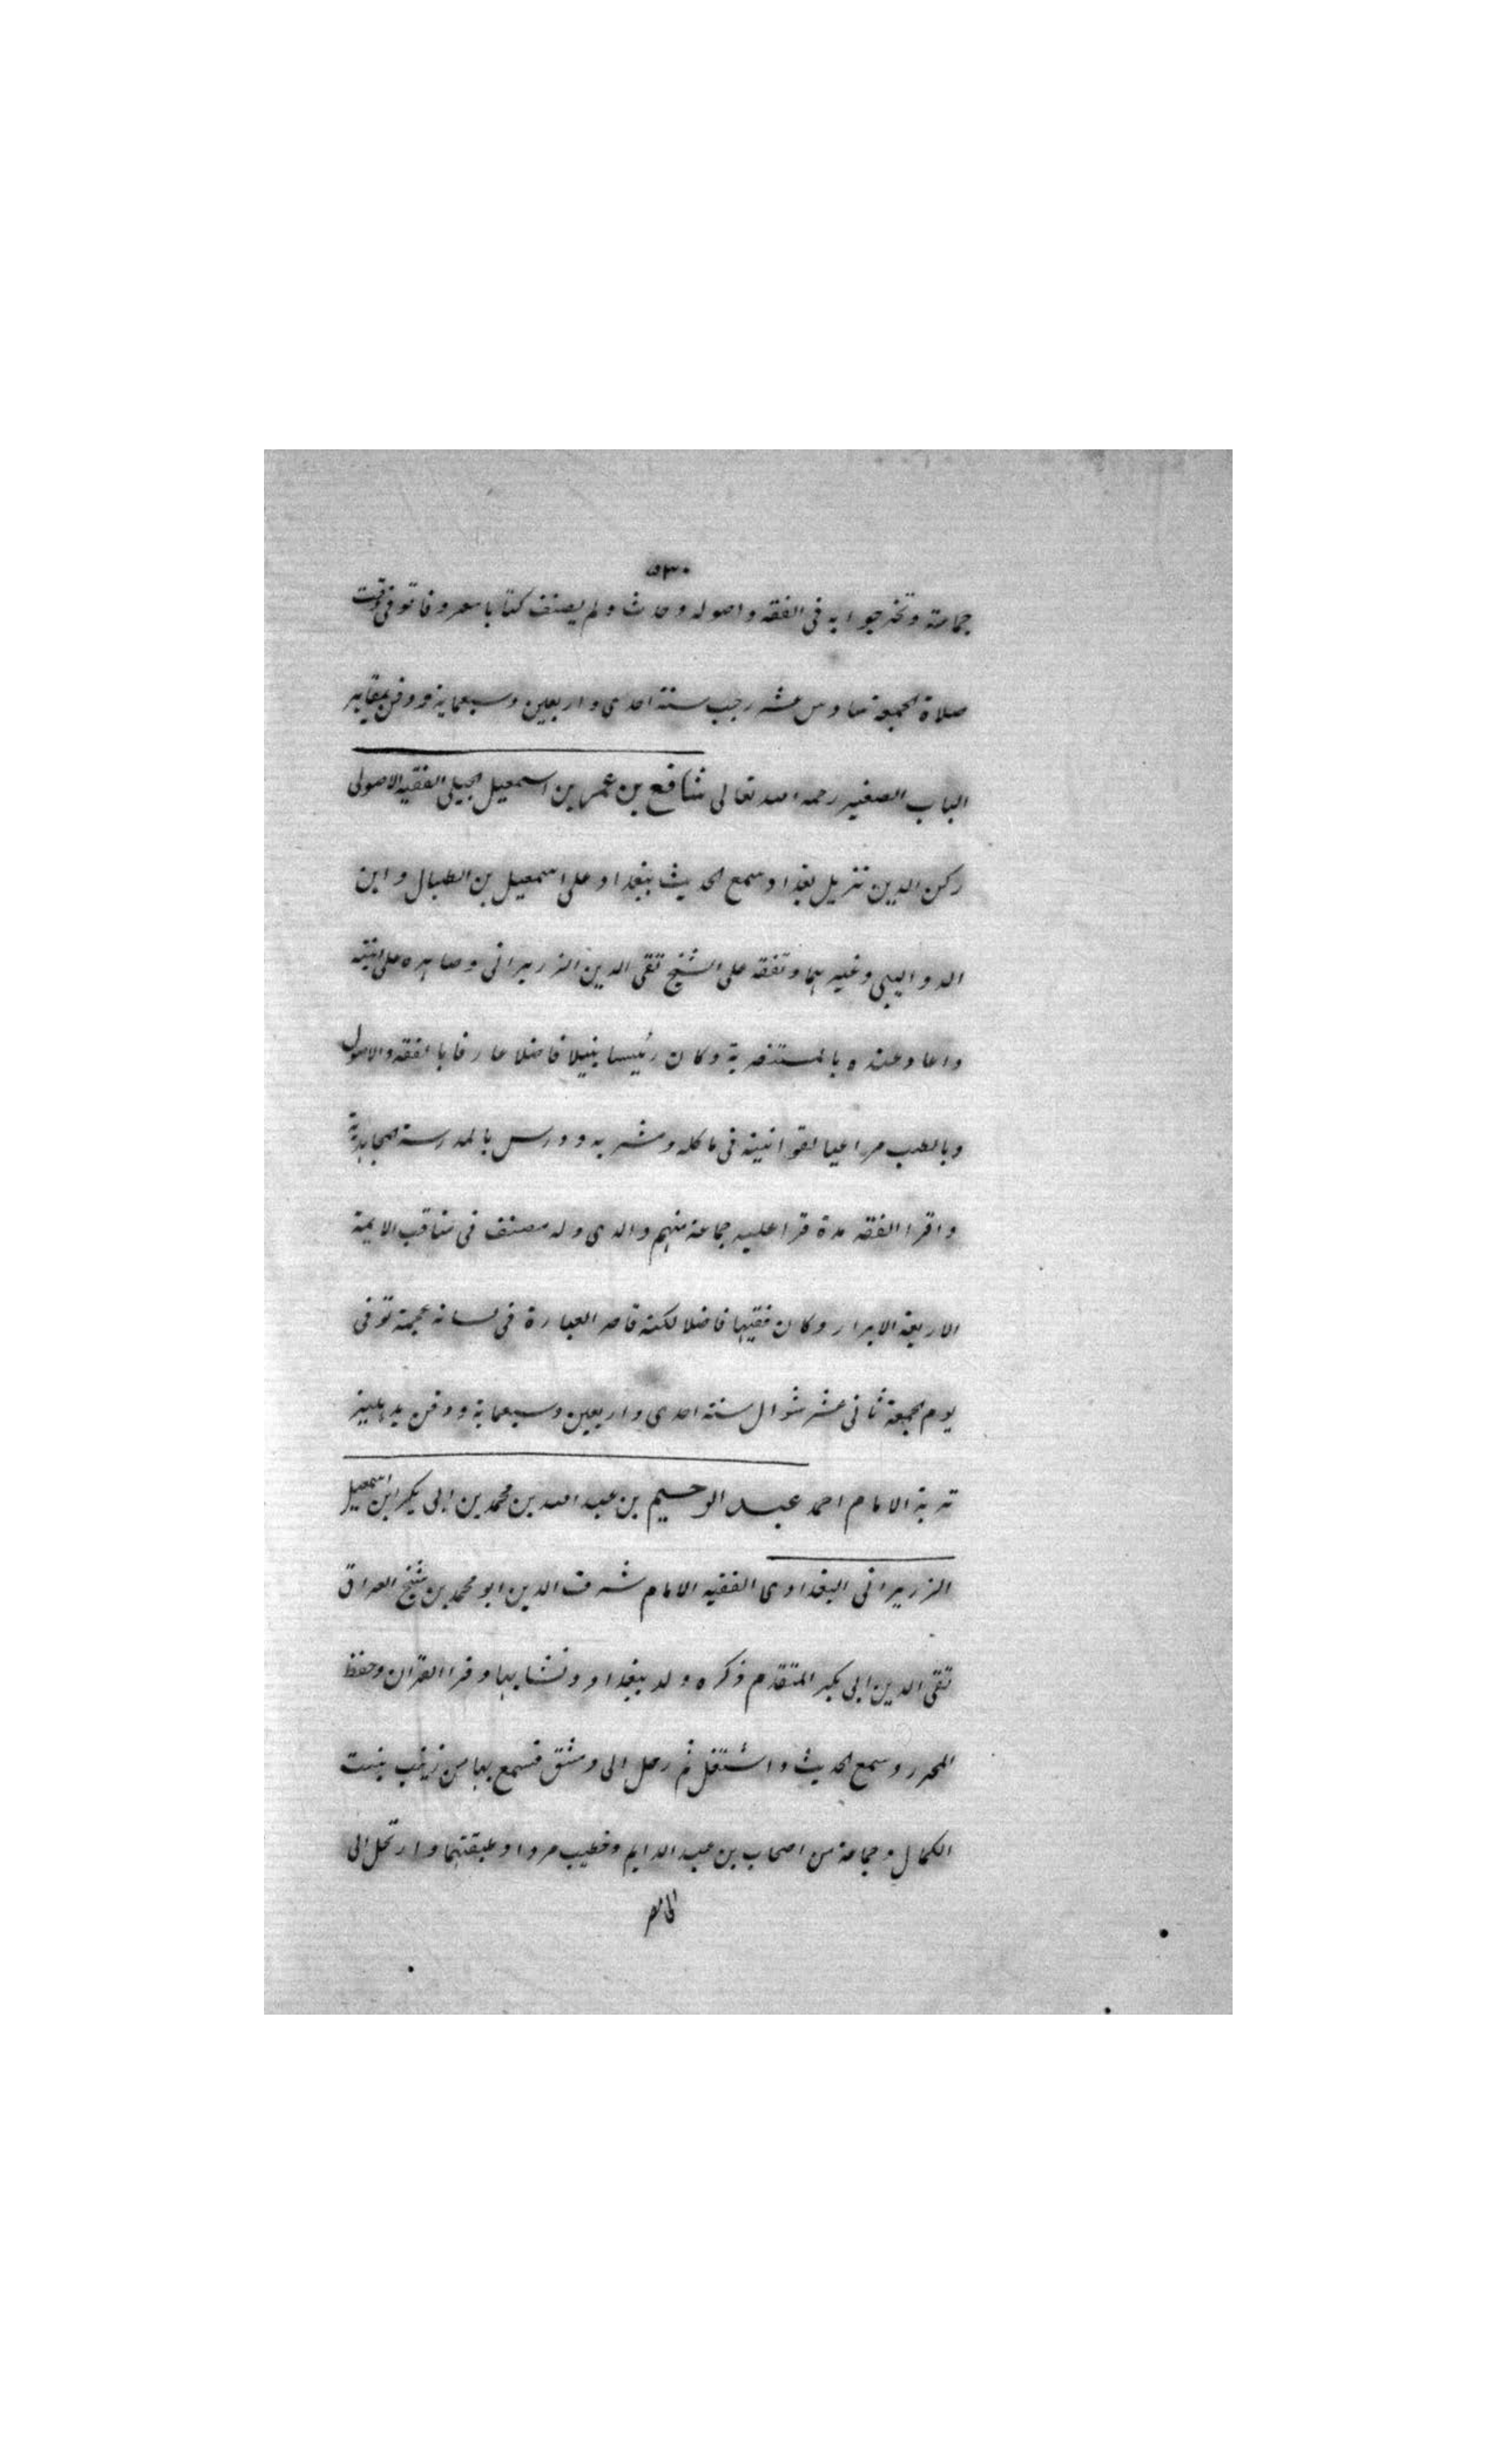 ٥٣٠
جماعة وتخرجوا به فى الفقه واصوله وحدث ولم يصنف كتابا معروفا توفى وقت
صلاة الجمعة سادس عشر رجب سنة احدى واربعين وسبعماية ودفن بمقابر
الباب الصغير رحمه الله تعالى شافع بن عمر بن اسمعيل الجيلى الفقيه الاصولى
ركن الدين نزيل بغداد سمع الحديث ببغداد على اسمعيل بن الطبال وابن
الدواليبى وغيرهما وتفقه على الشيخ تقى الدين الزريرانى وصاهره على ابنته
واعاد عنده بالمستنصرية وكان رئيسا نبيلا فاضلا عارفا بالفقه والاصول
وبالطب مراعيا لقوانينه فى ماكله ومشربه ودرس بالمدرسة المجاهدية
واقرا الفقه مدة قرا عليه جماعة منهم والدى وله مصنف فى مناقب الايمة
الاربعة الابرار وكان فقيها فاضلا لكنه قاصر العبارة فى لسانه عجمة توفى
يوم الجمعة ثانى عشر شوال سنة احدى واربعين وسبعماية ودفن بدهليز
تربة الامام احمد عبد الرحيم بن عبد الله بن محمد بن ابى بكر ابن اسمعيل
الزريرانى البغدادى الفقيه الامام شرف الدين ابو محمد بن شيخ العراق
تقى الدين ابى بكر المتقدم ذكره ولد ببغداد ونشا بها وقرا القران وحفظ
المحرر وسمع الحديث واشتغل ثم رحل الى دمشق فسمع بها من زينب بنت
الكمال وجماعة من اصحاب بن عبد الدايم وخطيب مردا وطبقتهما وارتحل الى